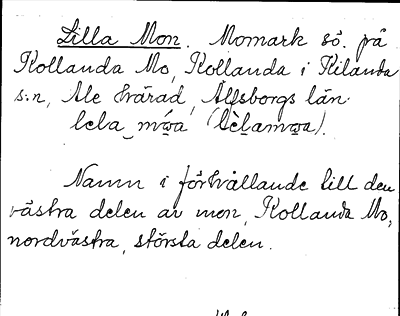 Lilla Mon. Momark sö. på
Kollanda Mo, Kollanda i Kilanda
s:n, Ale härad, Älfsborgs län.
Namn i förhållande till den
västra delen av mon, Kollanda Mo,
nordvästra, största delen.